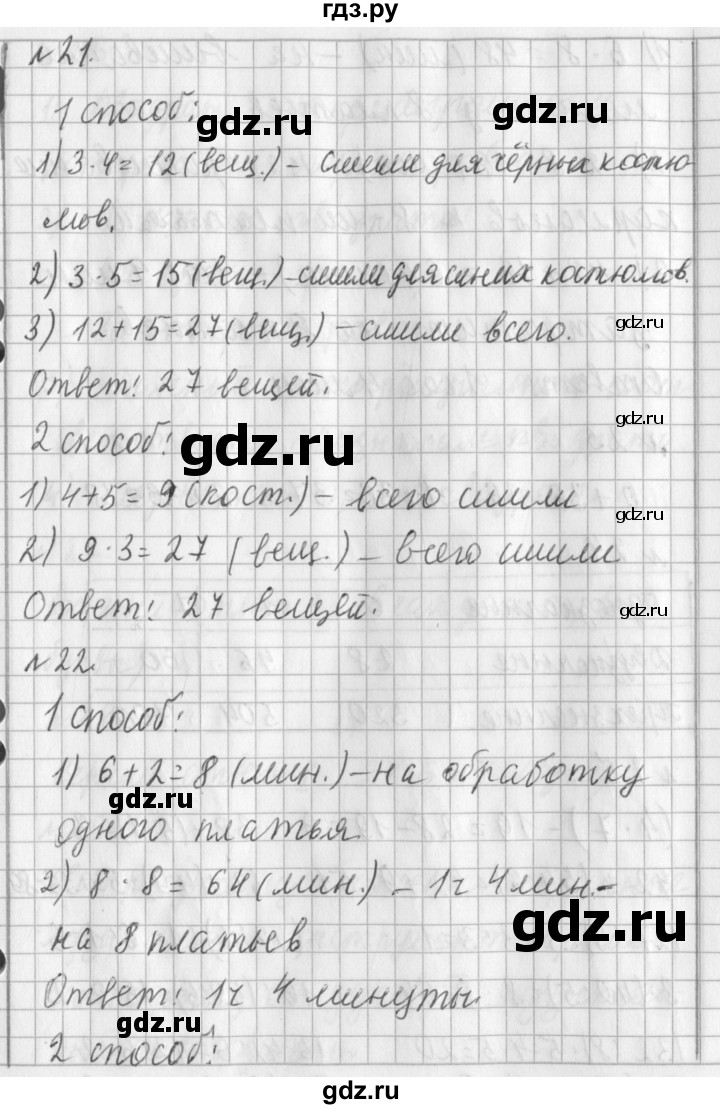 гдз.ру
№21.
1 способ:
gdz.ru
gdz.ru
1) 3·4=12(вещ.) - сшили для чёрных костю-
мов.
2) 3·5=15(вещ.) - сшили для синих костюмов.
3) 12+15=27(вещ.) - сшили всего.
gdz.ru
Ответ: 27 вещей.
gdz.ru
2 способ:
gdz.ru
1) 4+5=9(кост.) - всего сшили
gdz.ru
2) 9·3=27 (вещ.) - всего сшили
Ответ: 27 вещей.
gdz.ru
№22.
1 способ:
1) 6+2=8 (мин.) - на обработку
gdz.ru
одного платья
2) 8·8=64(мин.) - 1ч 4мин.-
gdz.ru
на 8 платьев
Ответ: 1ч 4 минуты.
gdz.ru
2 способ:
gdz.ru